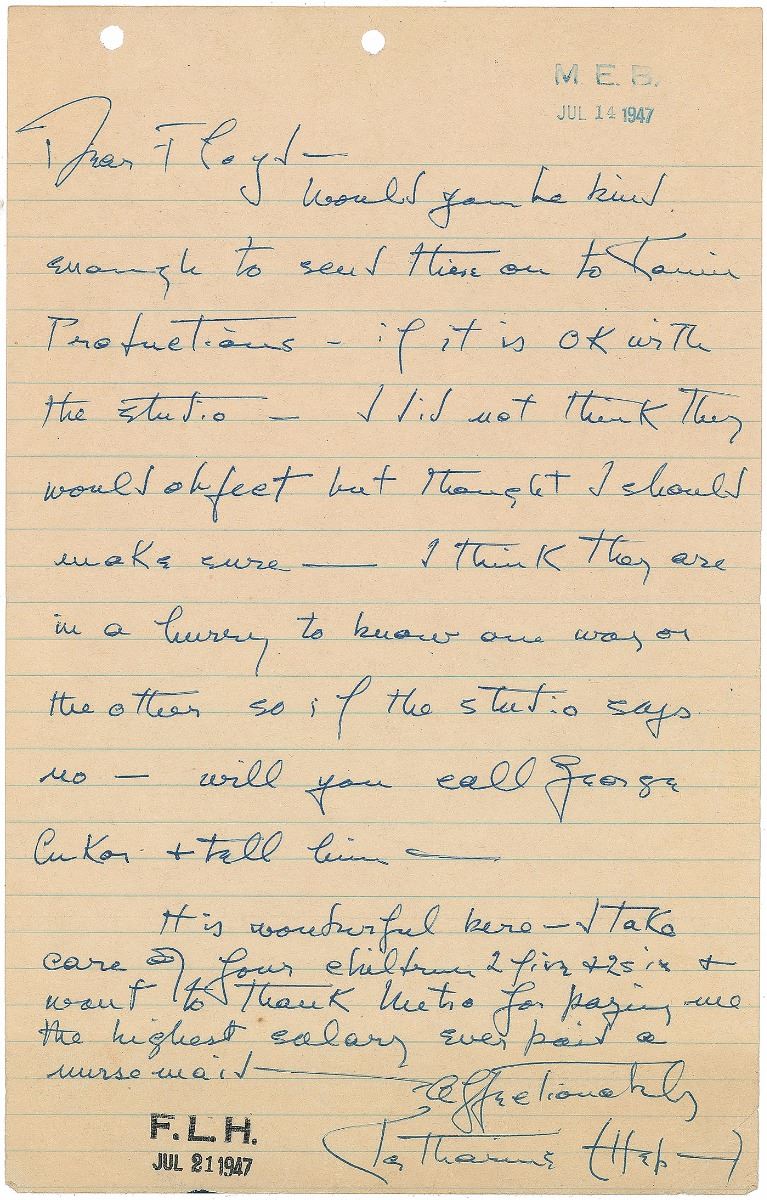 M. E. B.
JUL 14 1947
Dear Floyd —
Would you be kind
enough to send these on to Kanin
Productions - if it is OK with
the studio — I did not think they
would object but thought I should
make sure — I think they are
in a hurry to know one way or
the other so if the studio says
no — will you call George
Cukor + tell him —
It is wonderful here — I take
care of four children 2 five + 2 six +
want to thank Metro for paying me
the highest salary ever paid a
nursemaid —
Affectionately
Katharine (Hep—)
F. L. H.
JUL 21 1947